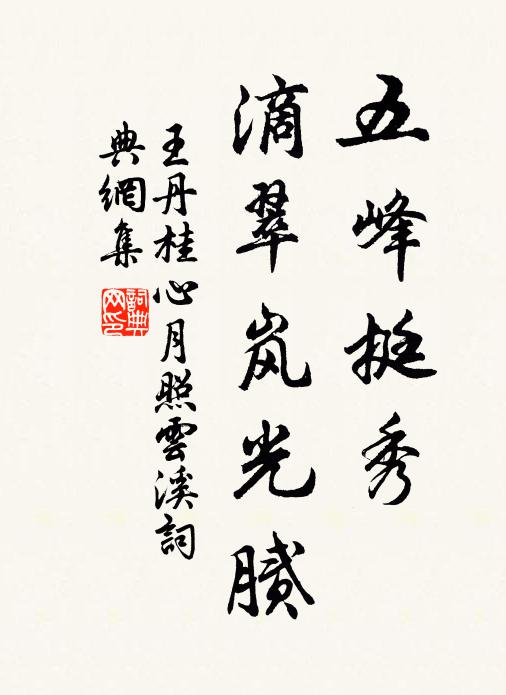 五峰挺秀
滴翠岚光膩
王丹桂心月照雲溪詞
典網集
詞典網印